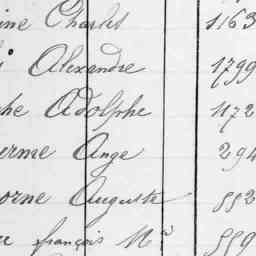 ine Charles 1163
i Alexandre 1799
he Adolphe 1172
erme Ange 294
orne Auguste 552
u françois Mie 559